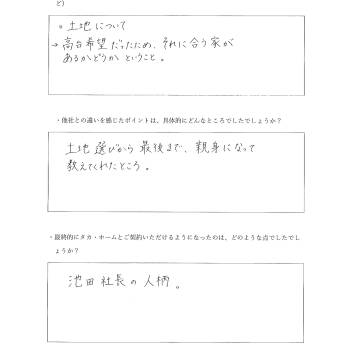 ど）
。土地について
→高台希望だったため、それに合う家が
あるかどうか ということ。
・他社との違いを感じたポイントは、具体的にどんなところでしたでしょうか？
土地選びから最後まで、親身になって
教えてくれたところ。
・最終的にタカ・ホームとご契約いただけるようになったのは、どのような点でしたでし
ょうか？
池田社長の人柄。